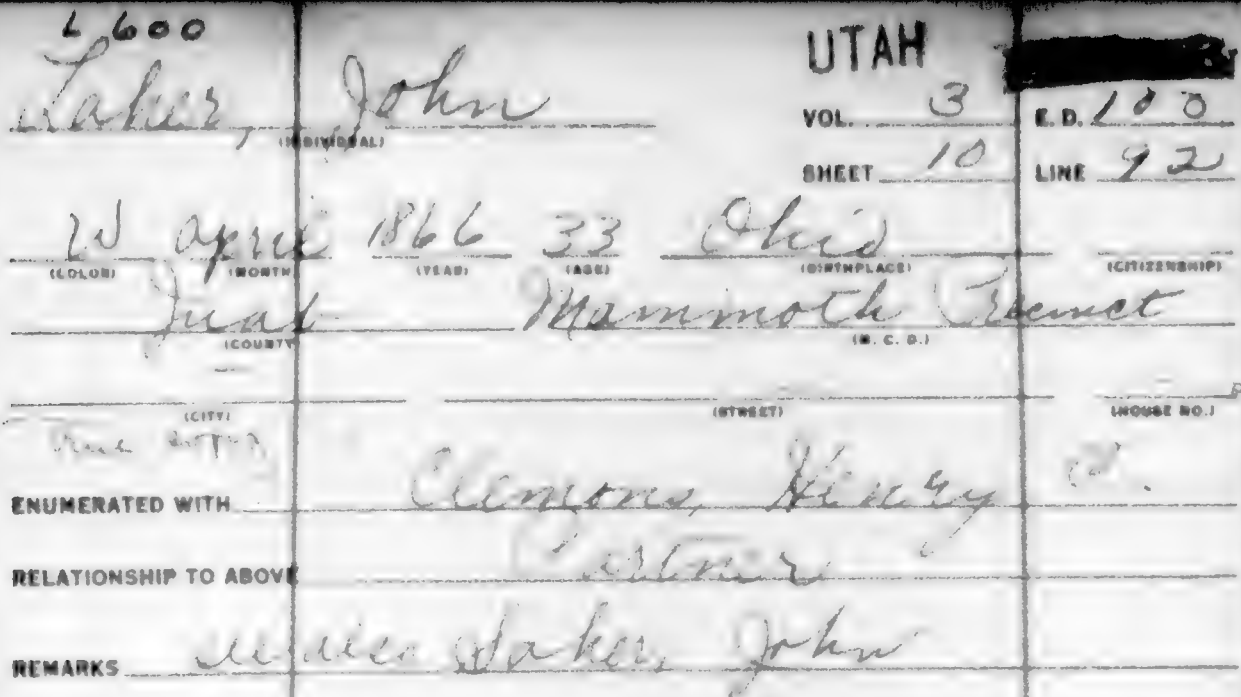 L 600
UTAH
Laker, John
(INDIVIDUAL)
VOL. 3 E. D. 100
SHEET 10 LINE 92
W April 1866 33 Ohio
(COLOR) (MONTH) (YEAR) (AGE) (BIRTHPLACE) (CITIZENSHIP)
Juab Mammoth Precinct
(COUNTY) (M. C. D.)
(CITY) (STREET) (HOUSE NO.)
ENUMERATED WITH Clemons, Henry
RELATIONSHIP TO ABOVE Partner
REMARKS Laker, John